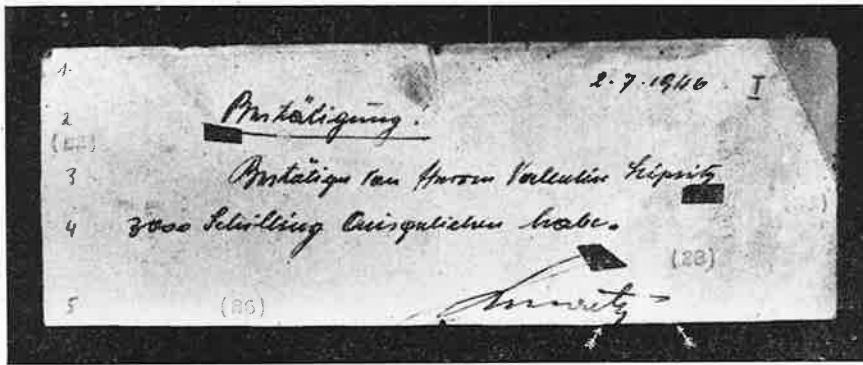 1.
2.7.1946 I
2 Bestätigung!
(22)
3 Bestätige von Herrn Valentin Lipsitz
4 3000 Schilling Ausgeliehen habe.
(23)
5 (26)